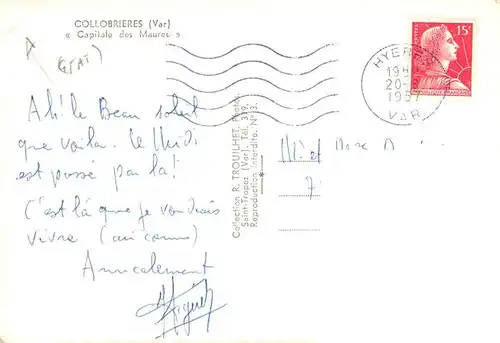 COLLOBRIERES (Var)
« Capitale des Maures »
A
Ah! le Beau soleil
que voila. le Midi
est passé par là!
C'est là que je voudrais
vivre (
Amicalement
Collection R. TROUILHET, Photos
Saint-Tropez (Var). Tél. 319.
Reproduction Interdite. N° 13.
15F
POSTES
REPUBLIQUE FRANÇAISE
HYERES
20-
1957
VAR
M. et